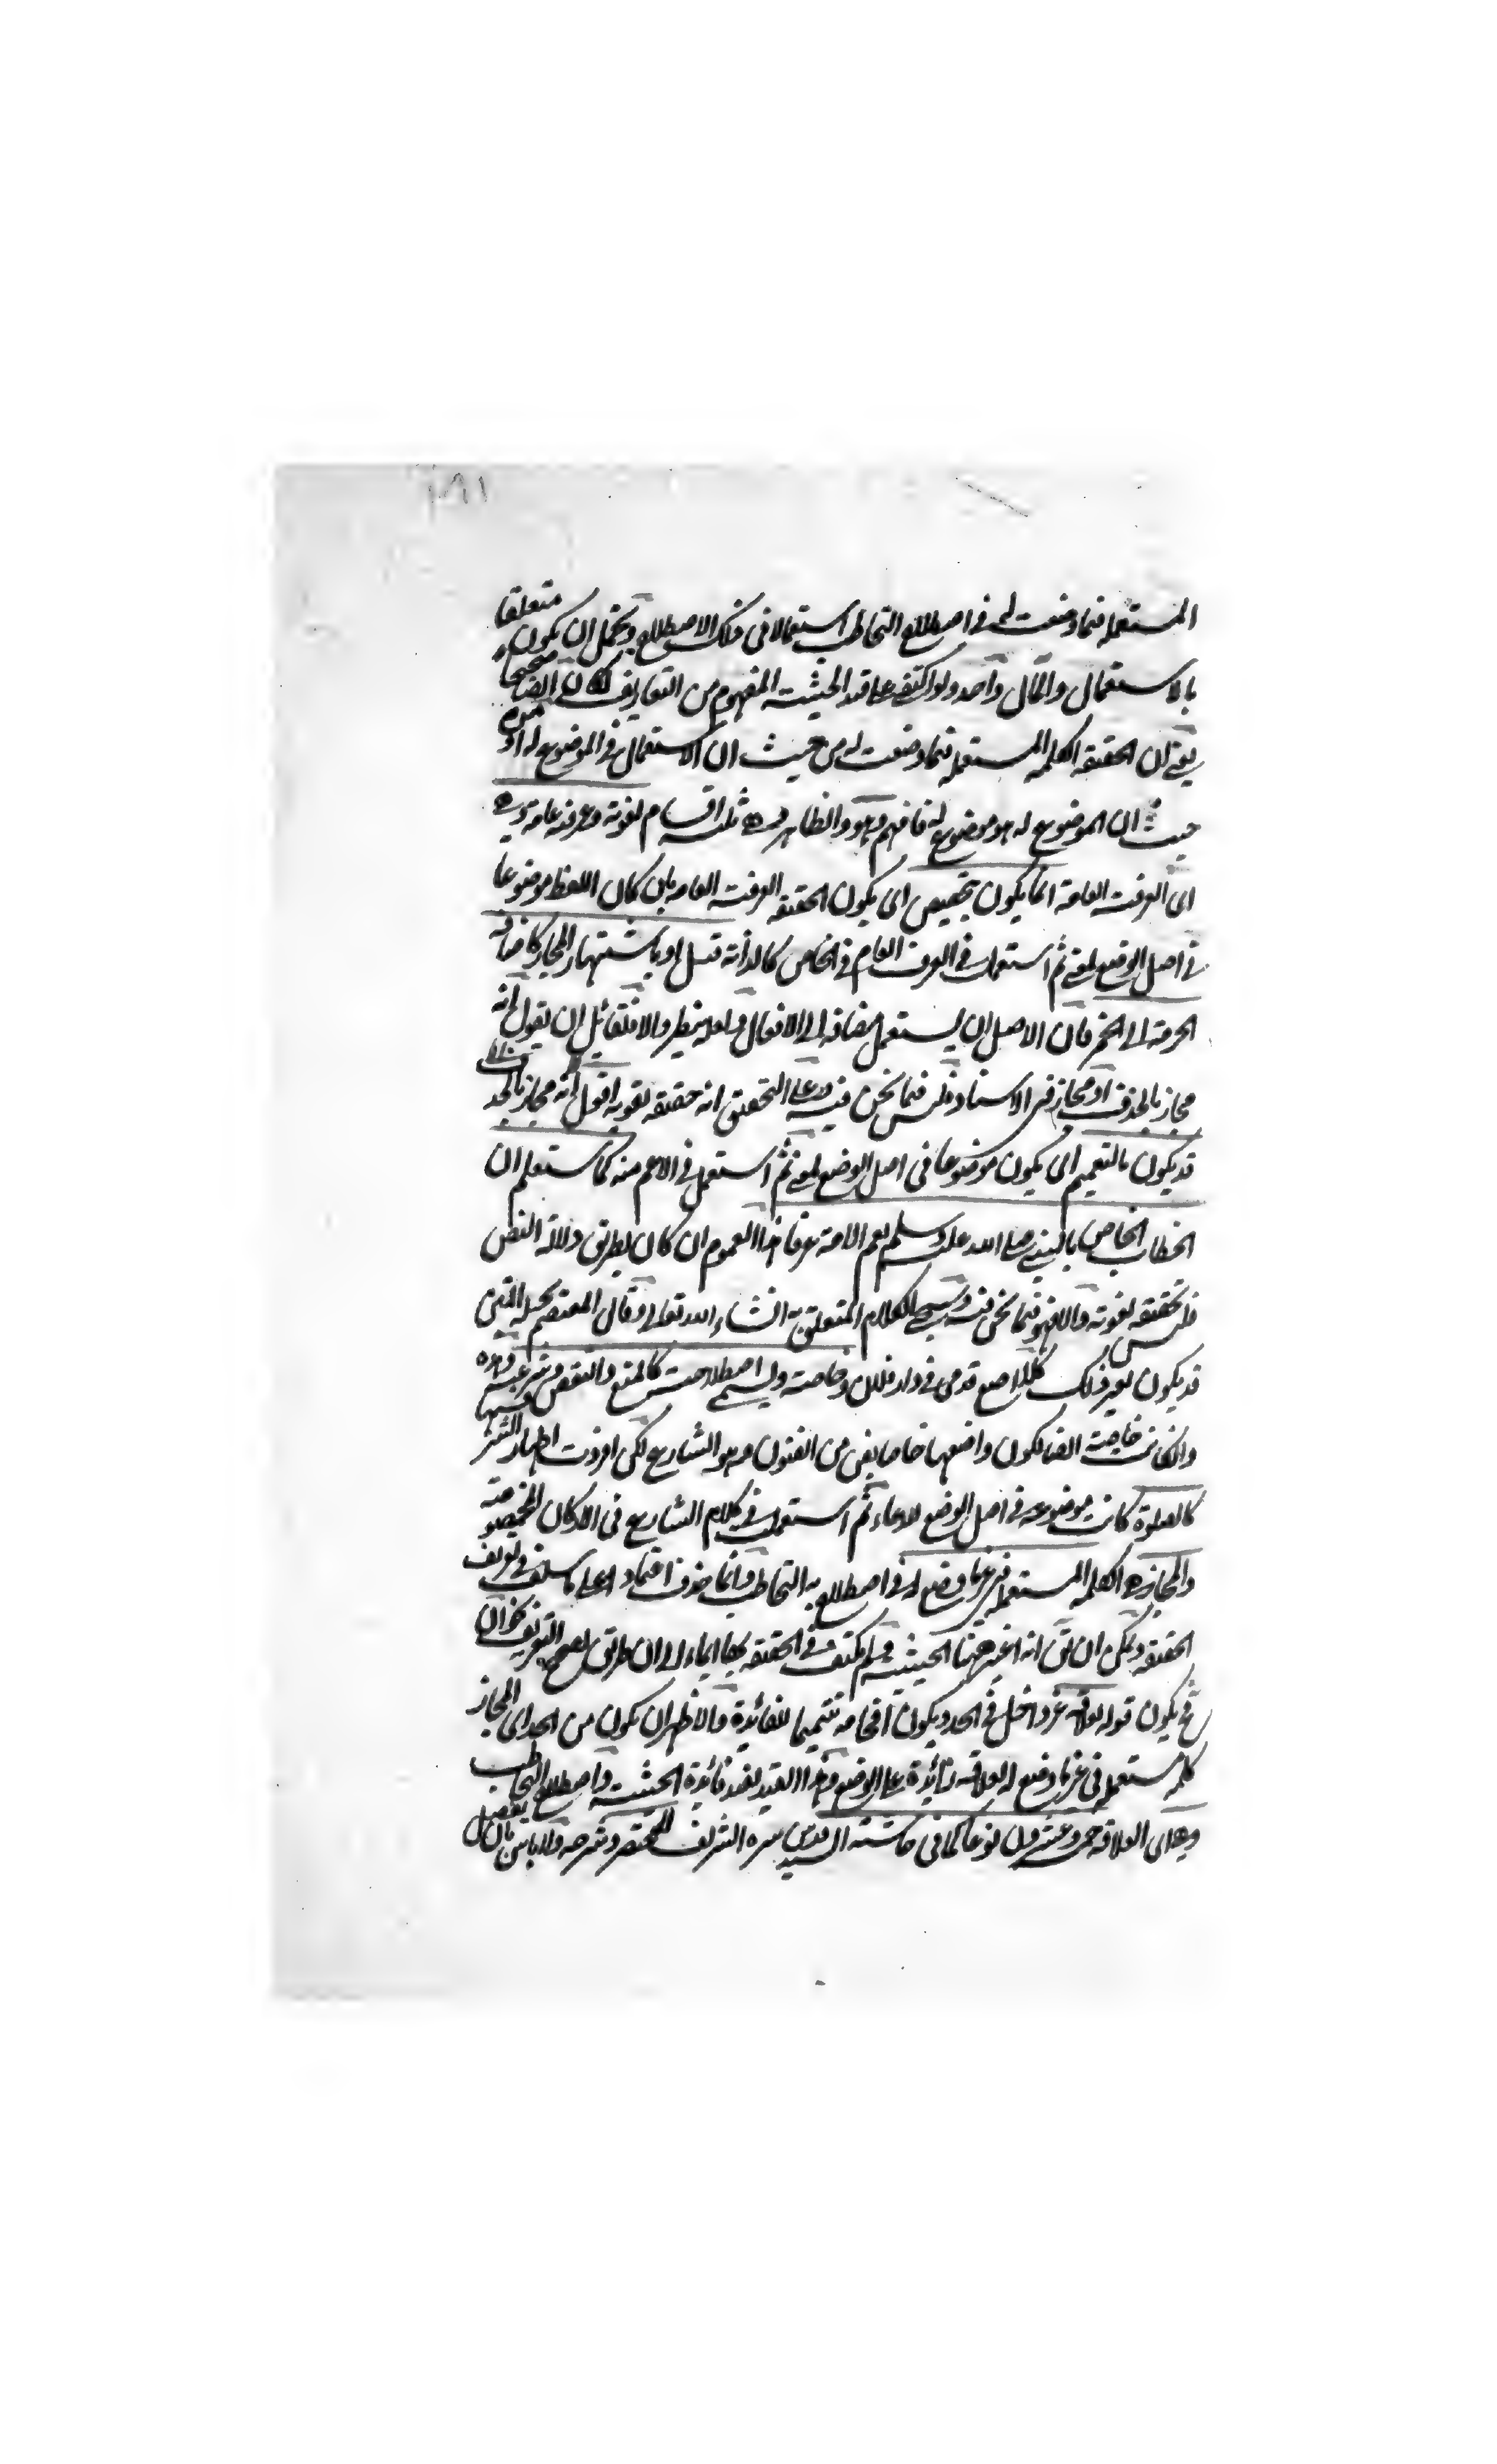 ١٨١
المستعملة فيما وضعت له في اصطلاح التخاطب استعمالا في ذلك الاصطلاح ويحتمل ان يكون متعلقا
بالاستعمال والمآل واحد ولو اكتفى على قيد الحيثية المفهوم من التعاريف لكان ايضا صحيحا
يعني ان الحقيقة الكلمة المستعملة فيما وضعت له من حيث ان الاستعمال في الموضوع له او من
حيث ان الموضوع له هو موضوع له فافهم وهو الظاهر وهي ثلثة اقسام لغوية وعرفية عامة وهي
اى العرفية العامة انما يكون بتخصيص اى يكون الحقيقة العرفية العامة بان كان اللفظ موضوعا
في اصل الوضع لمعنى ثم استعملت في العرف العام في الخاص كالدابة قيل او باشتهار المجاز كاضافة
الحرمة الى الخمر فان الاصل ان يستعمل مضافة الى الافعال وفيه نظر والا فلقائل ان يقول انه
مجاز بالحذف او مجاز في الاسناد فليس فيما نحن فيه وعلى التحقيق انه حقيقة لغوية اقول انه مجاز بالحذف
قد يكون بالتعميم اى يكون موضوعا في اصل الوضع لمعنى ثم استعمل في الاعم منه كما ستعلم ان
الخطاب الخاص بالنبي صلى الله عليه وسلم يعم الامة عرفا هذا العموم ان كان بطريق دلالة النص
فليس حقيقة لغوية والا فهو فيما نحن فيه وسيجئ الكلام المتعلق به انشاء الله تعالى وقال المعتصم بحبله المتين
قد يكون لغير ذلك ولخاصة وليسمى اصطلاحية كالمنع والنقض وشرعية وهذه
وان كانت خاصة ايضا لكون واضعها خاصا بفن من الفنون وهو الشارع لكن افردت اظهار الشرفها
كالصلوة كانت موضوعة في اصل الوضع للدعاء ثم استعملت في كلام الشارع في الاركان المخصوصة
والمجاز هى الكلمة المستعملة في غير ما وضع له في اصطلاح به التخاطب وانما حذف اعتمادا على ما سلف في تعريف
الحقيقة ويمكن ان يق انه اعتبر ههنا الحيثية ولم يكتف في الحقيقة بها ايماء الى ان طريق تصحيح التعريف
ح يكون قوله لعلاقة غير داخل في الحد ويكون اقحامه تتميما للفائدة والاظهر ان يكون من الحد اى المجاز
كلمة مستعملة في غير ما وضع له لعلاقة زائدة على الوضع وهذا القيد يفيد فائدة الحيثية واصطلاح التخاطب
وهى اى العلاقة خمس وعشرون نوعا كما في حاشية السيد قدس سره الشريف للمختصر وشرحه ولا باس بان يفصل